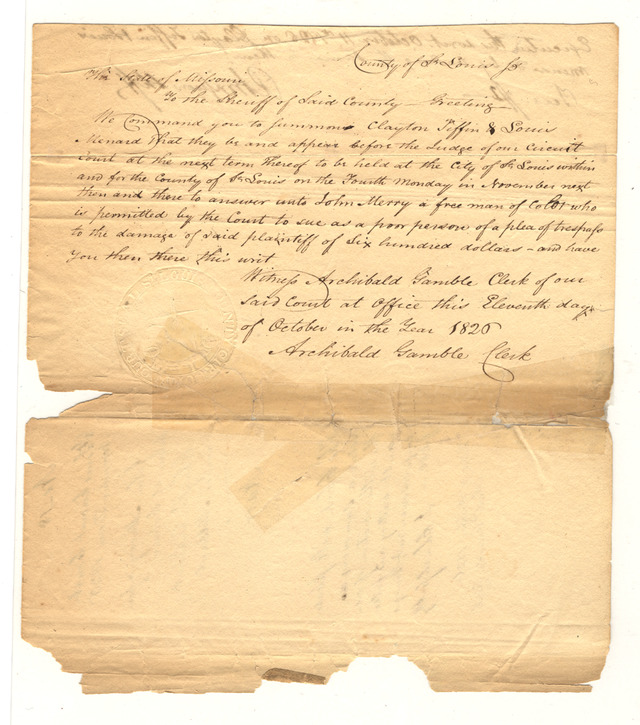 County of St Louis Sct
The State of Missouri
To the Sheriff of Said County — Greeting
We Command you to Summon Clayton Tiffin & Louis
Menard that they be and appear before the Judge of our Circuit
Court at the next term thereof to be held at the City of St Louis within
and for the County of St Louis on the Fourth Monday in November next
then and there to answer unto John Merry a free man of Color who
is permitted by the Court to sue as a poor person of a plea of trespass
to the damage of said plaintiff of Six hundred dollars — and have
you then there this writ
Witness Archibald Gamble Clerk of our
Said Court at office this Eleventh day
of October in the Year 1826
Archibald Gamble Clerk